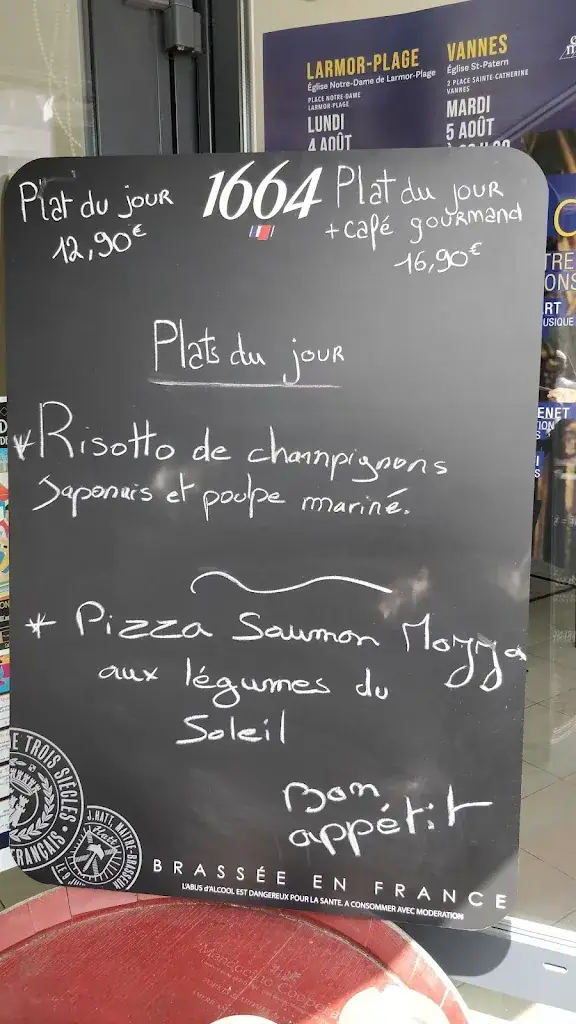 LARMOR-PLAGE
Église Notre-Dame de Larmor-Plage
PLACE NOTRE-DAME
LARMOR-PLAGE
LUNDI
4 AOÛT
VANNES
Église St-Patern
2 PLACE SAINTE-CATHERINE
VANNES
MARDI
5 AOÛT
Plat du jour
12,90€
1664
Plat du jour
+ café gourmand
16,90€
Plats du jour
* Risotto de champignons
Japonais et poulpe mariné.
* Pizza Saumon Mozza
aux légumes du
Soleil
Bon
appétit
TROIS SIÈCLES
FRANÇAIS
J.HATT, MAITRE-BRASSEUR
Hatt
BRASSÉE EN FRANCE
L'ABUS d'ALCOOL EST DANGEREUX POUR LA SANTE. A CONSOMMER AVEC MODERATION